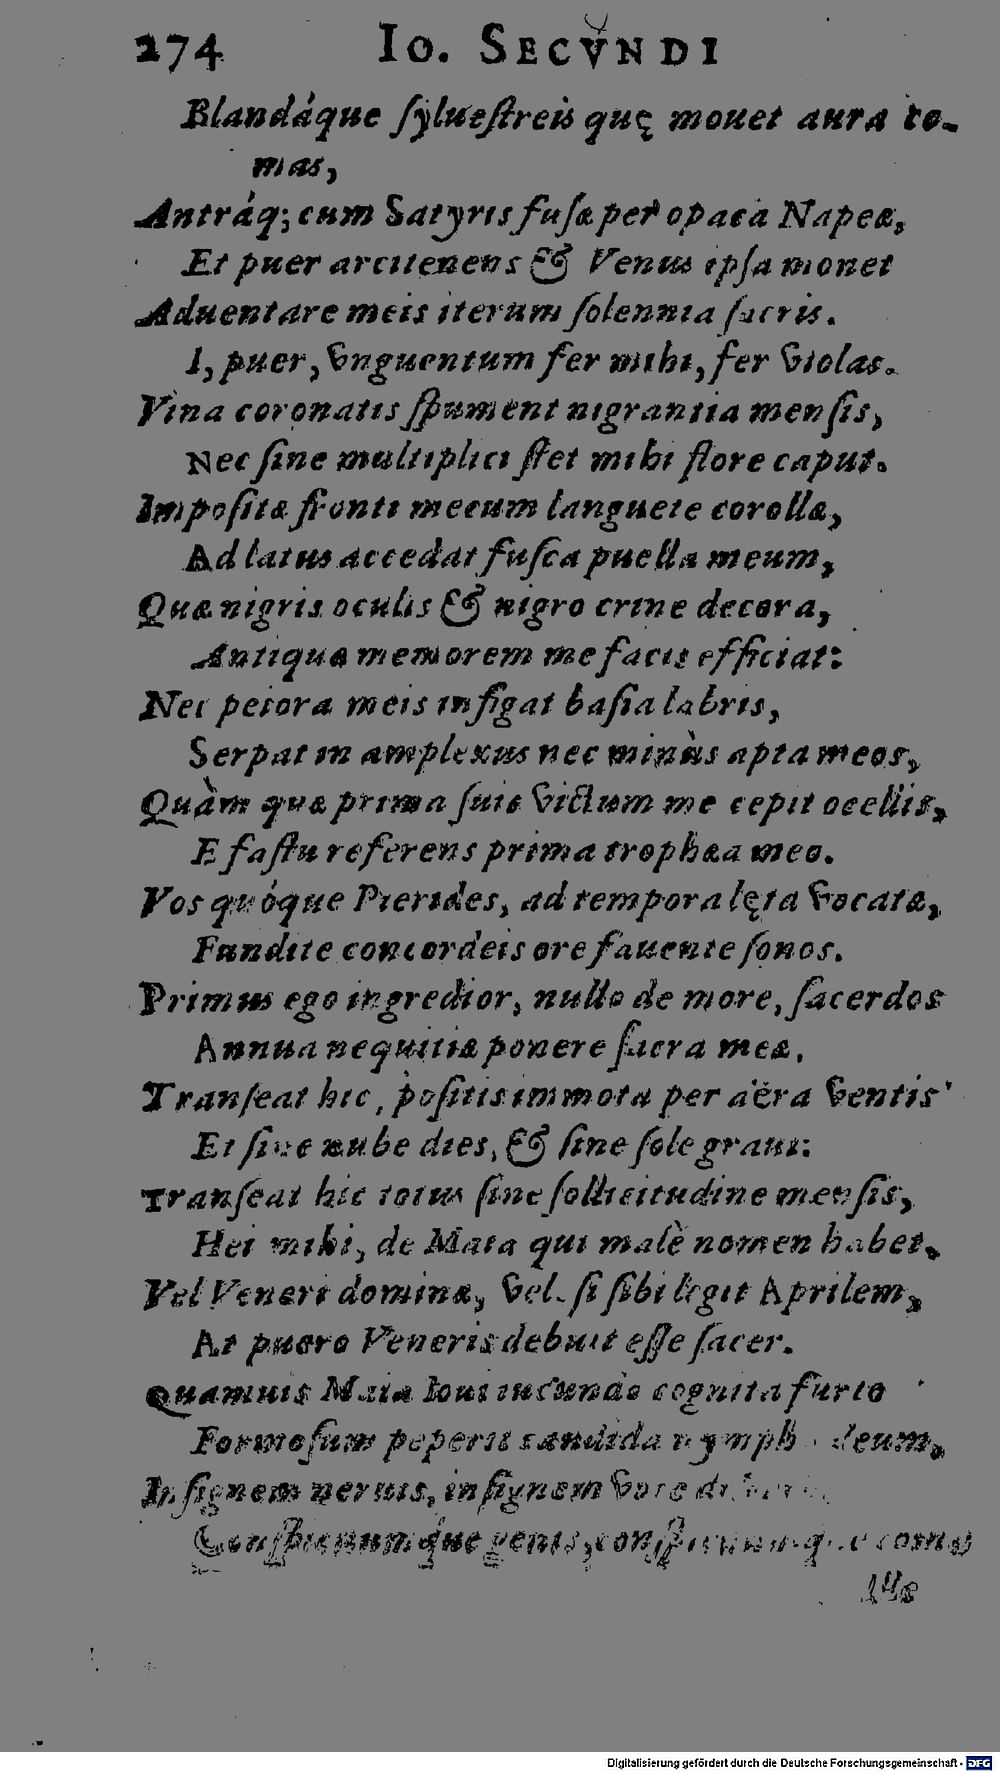 274 IO. SECVNDI
Blandáque syluestreis quę mouet aura co-
mas,
Antráq; cum Satyris fusæ per opaca Napeæ,
Et puer arcitenens & Venus ipsa monet
Aduentare meis iterum solennia sacris.
I, puer, vnguentum fer mihi, fer violas.
Vina coronatis spument nigrantia mensis,
Nec sine multiplici stet mihi flore caput.
Impositæ fronti mecum languete corollæ,
Ad latus accedat fusca puella meum,
Quæ nigris oculis & nigro crine decora,
Antiquæ memorem me facis efficiat:
Nec peiora meis infigat basia labris,
Serpat in amplexus nec minùs apta meos,
Quàm quæ prima suis victum me cepit ocellis,
E fastu referens prima trophæa meo.
Vos quóque Pierides, ad tempora lęta vocatæ,
Fundite concordeis ore fauente sonos.
Primus ego ingredior, nullo de more, sacerdos
Annua nequitiæ ponere sacra meæ.
Transeat hic, positis immota per aëra ventis
Et sine nube dies, & sine sole graui:
Transeat hic totus sine sollicitudine mensis,
Hei mihi, de Maia qui malè nomen habet.
Vel Veneri dominæ, vel si sibi legit Aprilem,
At puero Veneris debuit esse sacer.
Quamuis Maia Ioui iucundo cognita furto
Formosum peperit candida nymph deum,
Insignem neruis, insignem voce
Conspicuumque genis, comis
Digitalisierung gefördert durch die Deutsche Forschungsgemeinschaft - DFG